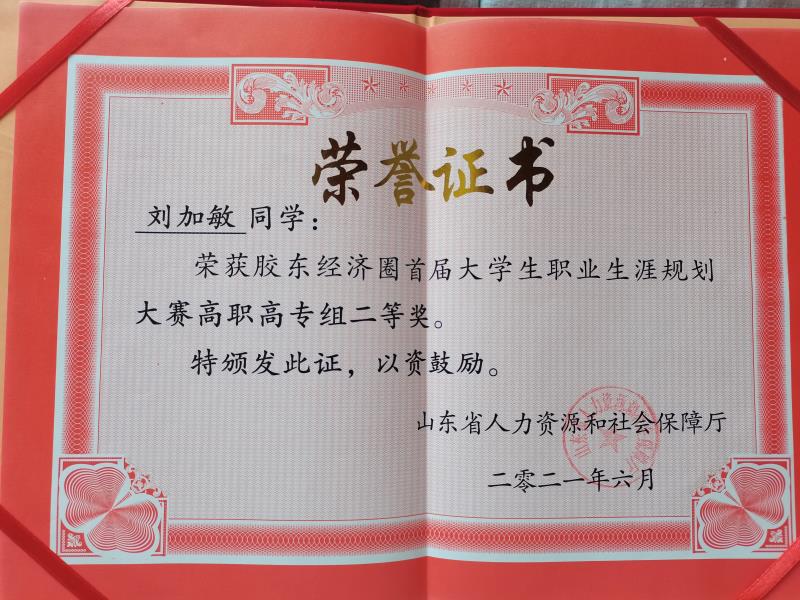 荣誉证书
刘加敏同学：
荣获胶东经济圈首届大学生职业生涯规划
大赛高职高专组二等奖。
特颁发此证，以资鼓励。
山东省人力资源和社会保障厅
二零二一年六月
山东省人力资源和社会保障厅